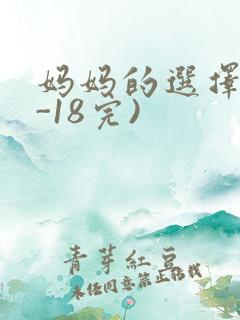 妈妈的選擇
-18完)
青芽紅豆
未经同意禁止转载